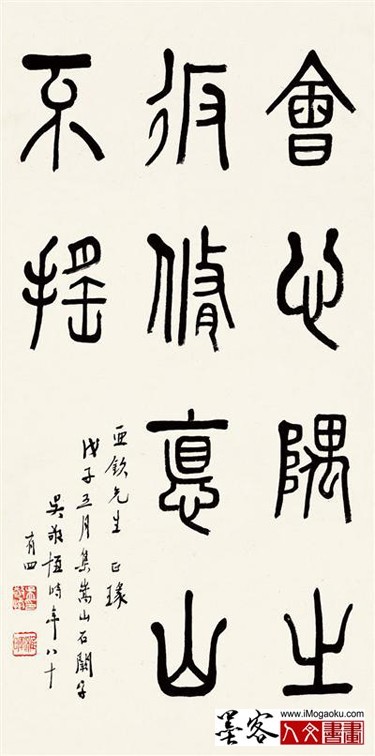 會心隅之
返脩悳山
不搖
亞欽先生 正瑑
戊子五月集嵩山石闕字
吳敬恆時年八十
有四
墨客
www.iMogaoku.com
人文書畫